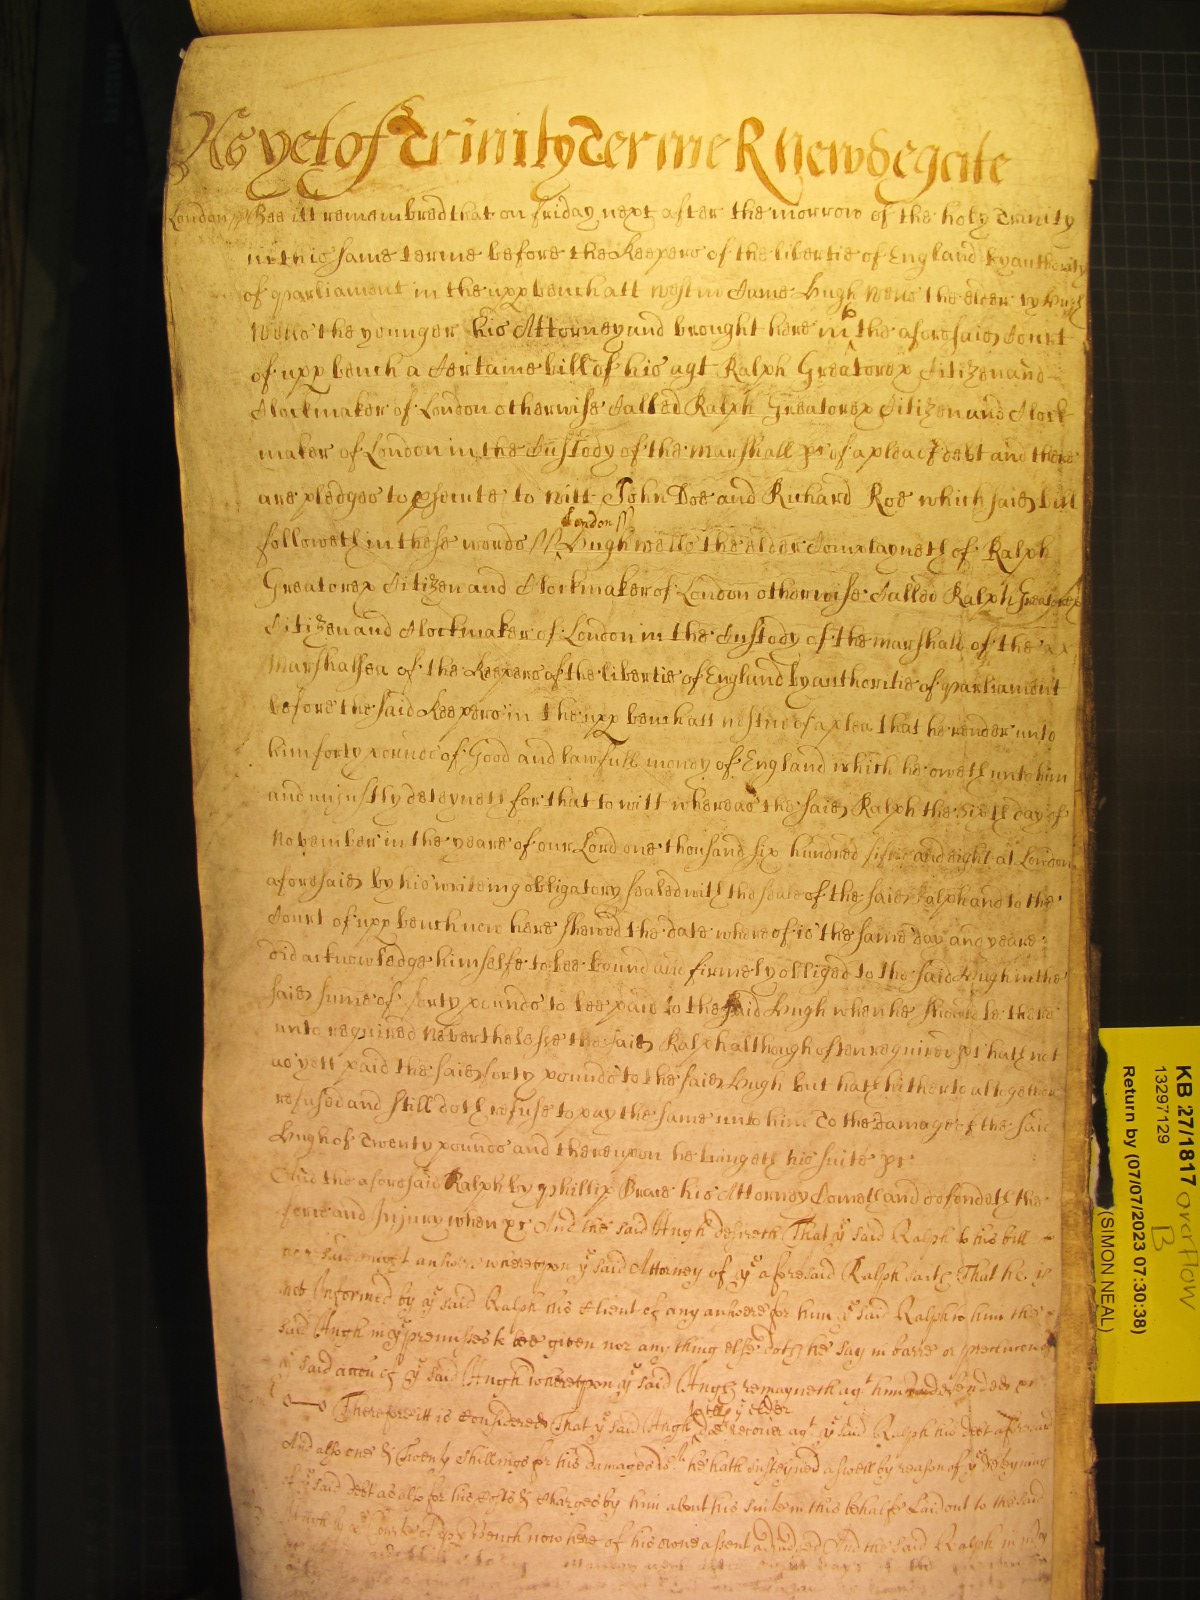 As yet of Trinity Terme R Newdegate
London // Bee itt remembred that on friday next after the morrow of the holy Trinity
in this same terme before the Keepers of the libertie of England by authority
of Parliament in the upp bench att Westm Came Hugh Wells the elder by Hugh
Wells the younger his Attorney and brought here into the aforesaid Court
of upp bench a Certaine bill of his agt Ralph Greatorex Citizen and
Clockmaker of London otherwise Called Ralph Greatorex Citizen and Clock
maker of London in the Custody of the marshall &c of a plea of debt and there
are pledges to psecute to witt John Doe and Richard Roe which said bill
London //
followeth in these words // Hugh Wells the elder Complayneth of Ralph
Greatorex Citizen and Clockmaker of London otherwise Called Ralph Greatorex
Citizen and Clockmaker of London in the Custody of the marshall of the
Marshalsea of the Keepers of the libertie of England by authoritie of Parliament
before the said Keepers in the upp bench att Westm of a plea that he render unto
him forty pounds of Good and lawfull money of England which he oweth unto him
and unjustly deteyneth for that to witt whereas the said Ralph the sixth day of
November in the yeare of our Lord one thousand six hundred fiftie and eight at London
aforesaid by his writeing obligatory sealed with the seale of the said Ralph and to the
Court of upp bench now here shewed the date whereof is the same day and yeare
did acknowledge himselfe to bee bound and firmely obliged to the said Hugh in the
said sume of forty pounds to bee paid to the said Hugh when he should be there
unto required Neverthelesse the said Ralph although often required &c hath not
as yett paid the said forty pounds to the said Hugh but hath hitherto altogether
refused and still doth refuse to pay the same unto him To the damage of the said
Hugh of Twenty pounds and thereupon he bringeth his suite &c
And the aforesaid Ralph by Phillip Grave his Attorney Cometh and defendeth the
force and Injury when &c And the said Hugh desireth That ye said Ralph to his bill
aforesaid might answere whereupon ye said Attorney of ye aforesaid Ralph saith That he is
not Informed by ye said Ralph his Client of any answere for him ye said Ralph to him the
said Hugh in ye premisses to bee given nor any thing else doth he say in barre or preclusion of
ye said accon of ye said Hugh whereupon ye said Hugh remayneth agt him undefended &c
Wells ye elder
Therefore itt is Considered That ye said Hugh doe recover agt ye said Ralph his debt aforesaid
And also one & Twenty Shillings for his damages wch he hath susteyned aswell by reason of ye deteyning
of ye said debt as also for his Costs & Charges by him about his suite in this behalfe Laid out to the said
Hugh by ye Courte of upp Bench now here of his owne assent adjudged And the said Ralph in mcy
KB 27/1817 overflow
B
13297129
Return by (07/07/2023 07:30:38)
(SIMON NEAL)